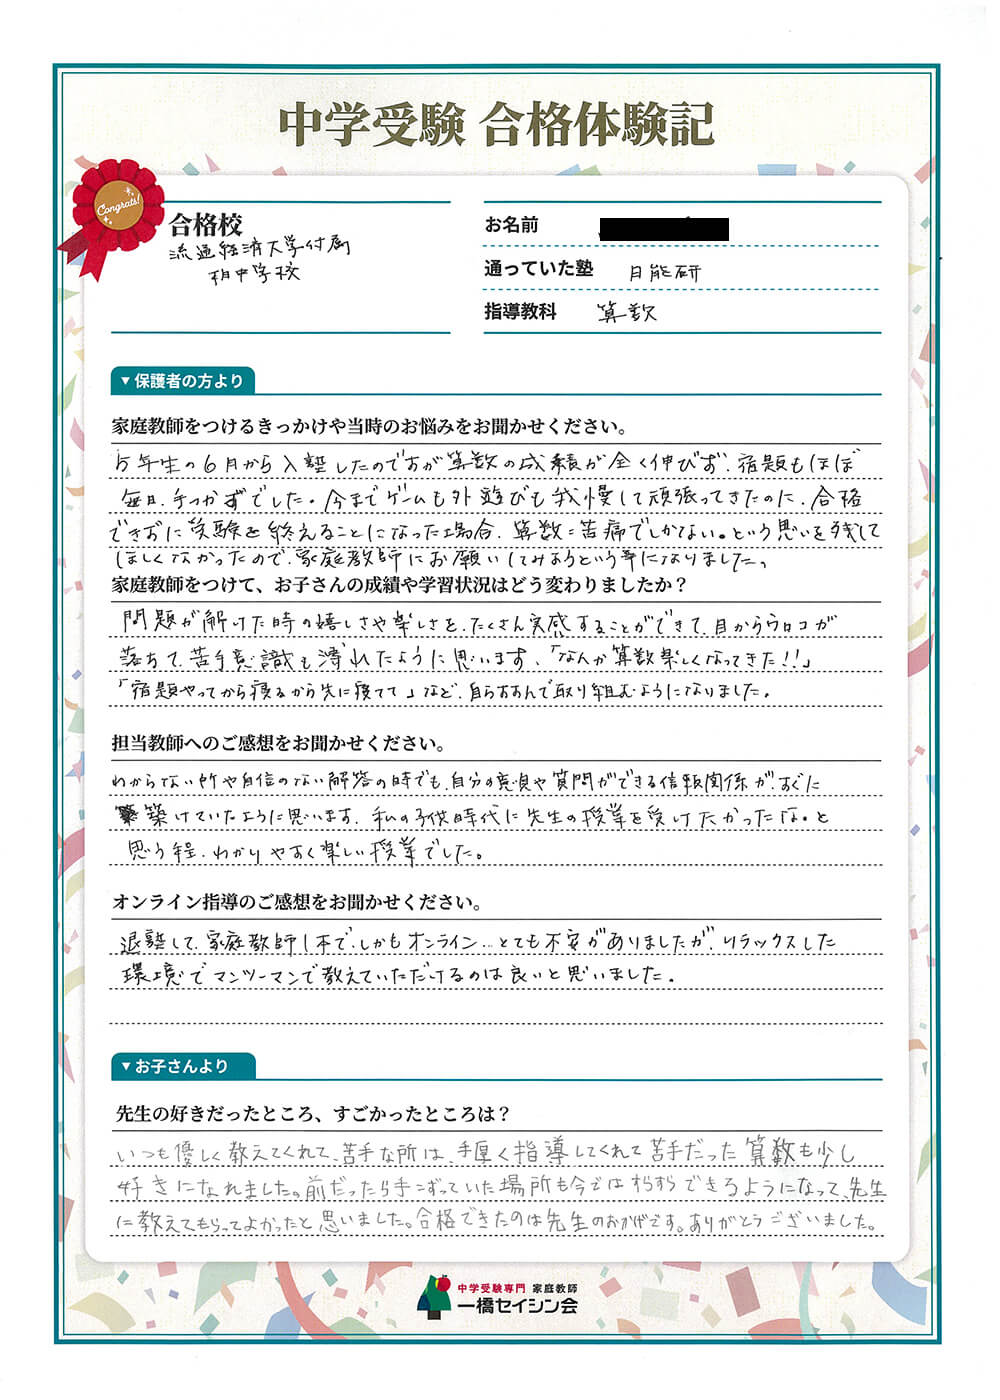 中学受験 合格体験記
Congrats!
合格校
流通経済大学付属
柏中学校
お名前
通っていた塾 日能研
指導教科 算数
▼保護者の方より
家庭教師をつけるきっかけや当時のお悩みをお聞かせください。
5年生の6月から入塾したのですが算数の成績が全く伸びず、宿題もほぼ
毎日、手つかずでした。今までゲームも外遊びも我慢して頑張ってきたのに、合格
できずに受験を終えることになった場合、算数=苦痛でしかない。という思いを残して
ほしくなかったので、家庭教師にお願いしてみようという事になりました。
家庭教師をつけて、お子さんの成績や学習状況はどう変わりましたか？
問題が解けた時の嬉しさや楽しさを、たくさん実感することができて、目からウロコが
落ちて、苦手意識も薄れたように思います。「なんか算数楽しくなってきた!!」
「宿題やってから寝るから先に寝てて」など、自らすすんで取り組むようになりました。
担当教師へのご感想をお聞かせください。
わからない所や自信のない解答の時でも、自分の意見や質問ができる信頼関係が、すぐに
築けていたように思います。私の子供時代に先生の授業を受けたかったな。と
思う程、わかりやすく楽しい授業でした。
オンライン指導のご感想をお聞かせください。
退塾して、家庭教師1本で、しかもオンライン…とても不安がありましたが、リラックスした
環境でマンツーマンで教えていただけるのは良いと思いました。
▼お子さんより
先生の好きだったところ、すごかったところは？
いつも優しく教えてくれて、苦手な所は、手厚く指導してくれて苦手だった算数も少し
好きになれました。前だったら手こずっていた場所も今ではすらすらできるようになって、先生
に教えてもらってよかったと思いました。合格できたのは先生のおかげです。ありがとうございました。
中学受験専門 家庭教師
一橋セイシン会